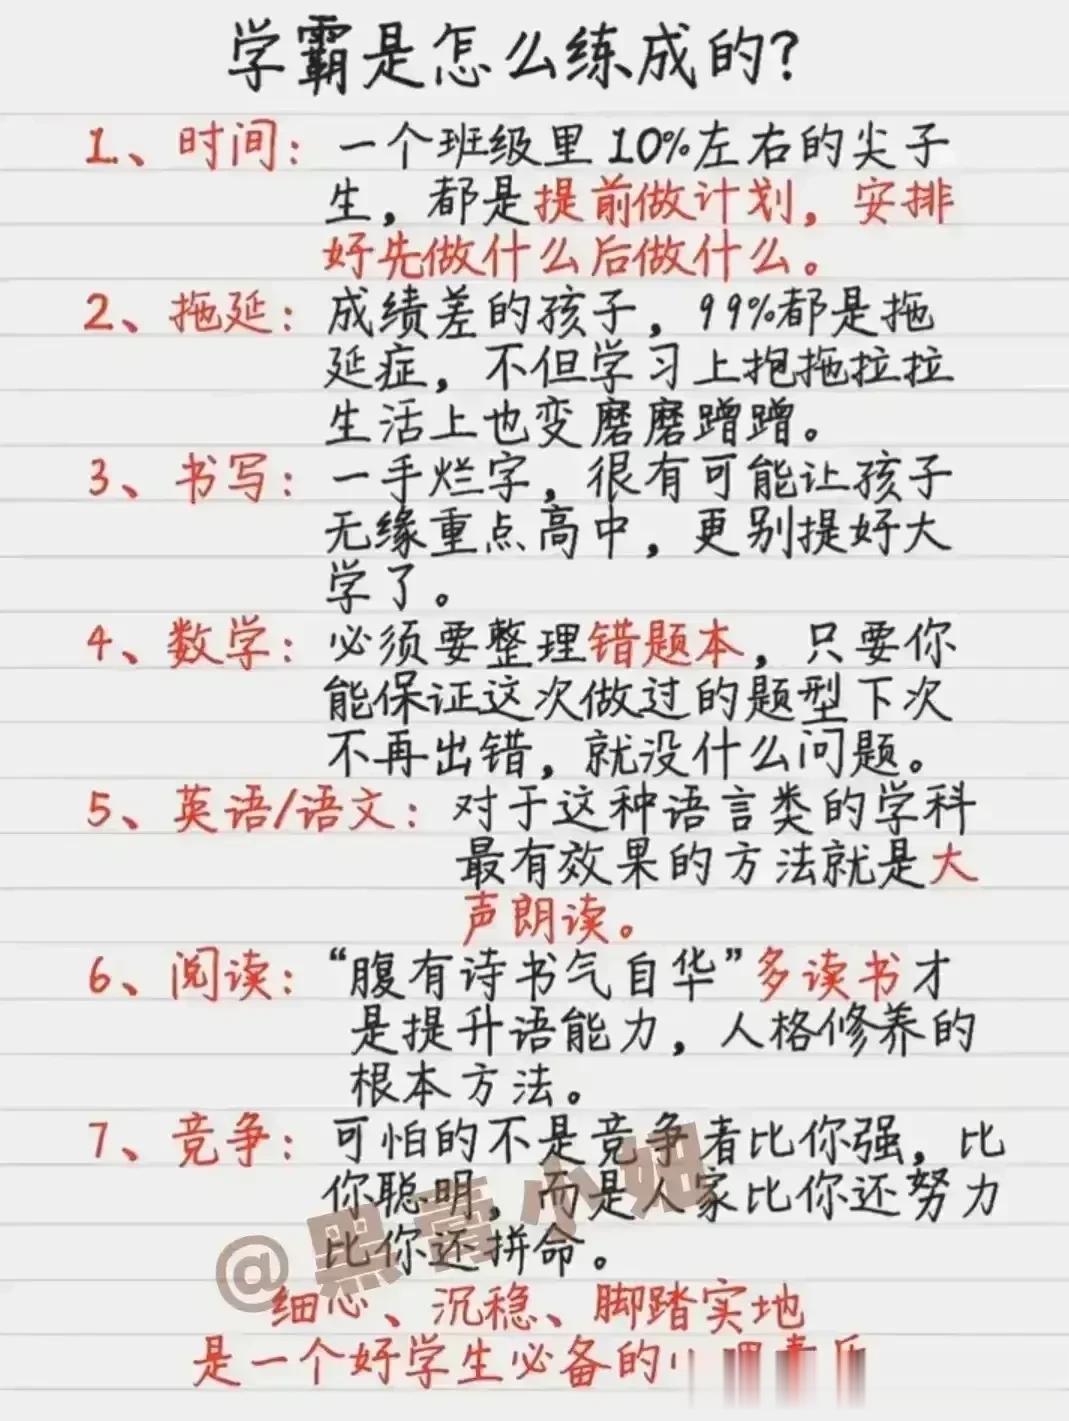 学霸是怎么练成的?
1、时间：一个班级里10%左右的尖子
生，都是提前做计划，安排
好先做什么后做什么。
2、拖延：成绩差的孩子，99%都是拖
延症，不但学习上抱拖拉拉
生活上也变磨磨蹭蹭。
3、书写：一手烂字，很有可能让孩子
无缘重点高中，更别提好大
学了。
4、数学：必须要整理错题本，只要你
能保证这次做过的题型下次
不再出错，就没什么问题。
5、英语/语文：对于这种语言类的学科
最有效果的方法就是大
声朗读。
6、阅读：“腹有诗书气自华”多读书才
是提升语能力，人格修养的
根本方法。
7、竞争：可怕的不是竞争者比你强，比
你聪明，而是人家比你还努力
比你还拼命。
@黑膏小妞
细心、沉稳、脚踏实地
是一个好学生必备的